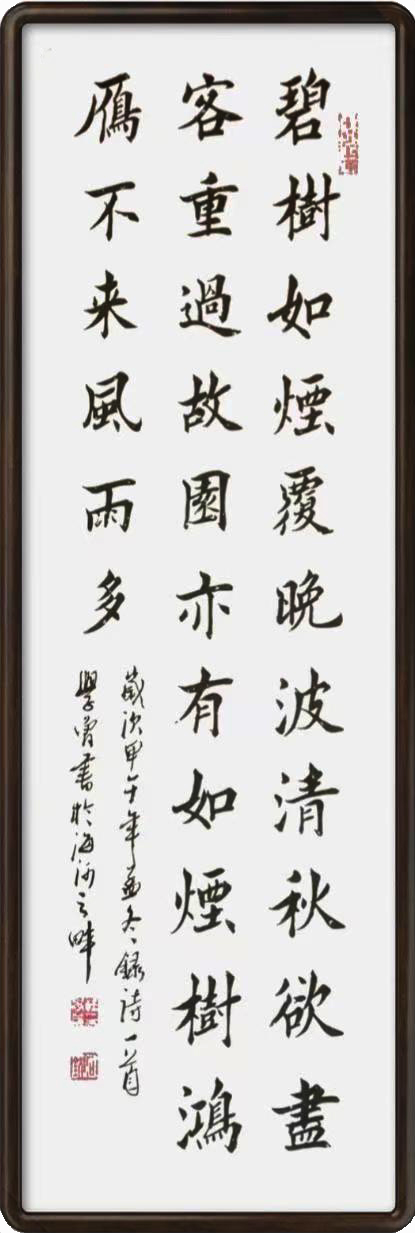 碧樹如煙覆晚波清秋欲盡
客重過故園亦有如煙樹鴻
鴈不来風雨多
歲次甲午年孟冬錄詩一首
學書於海河之畔